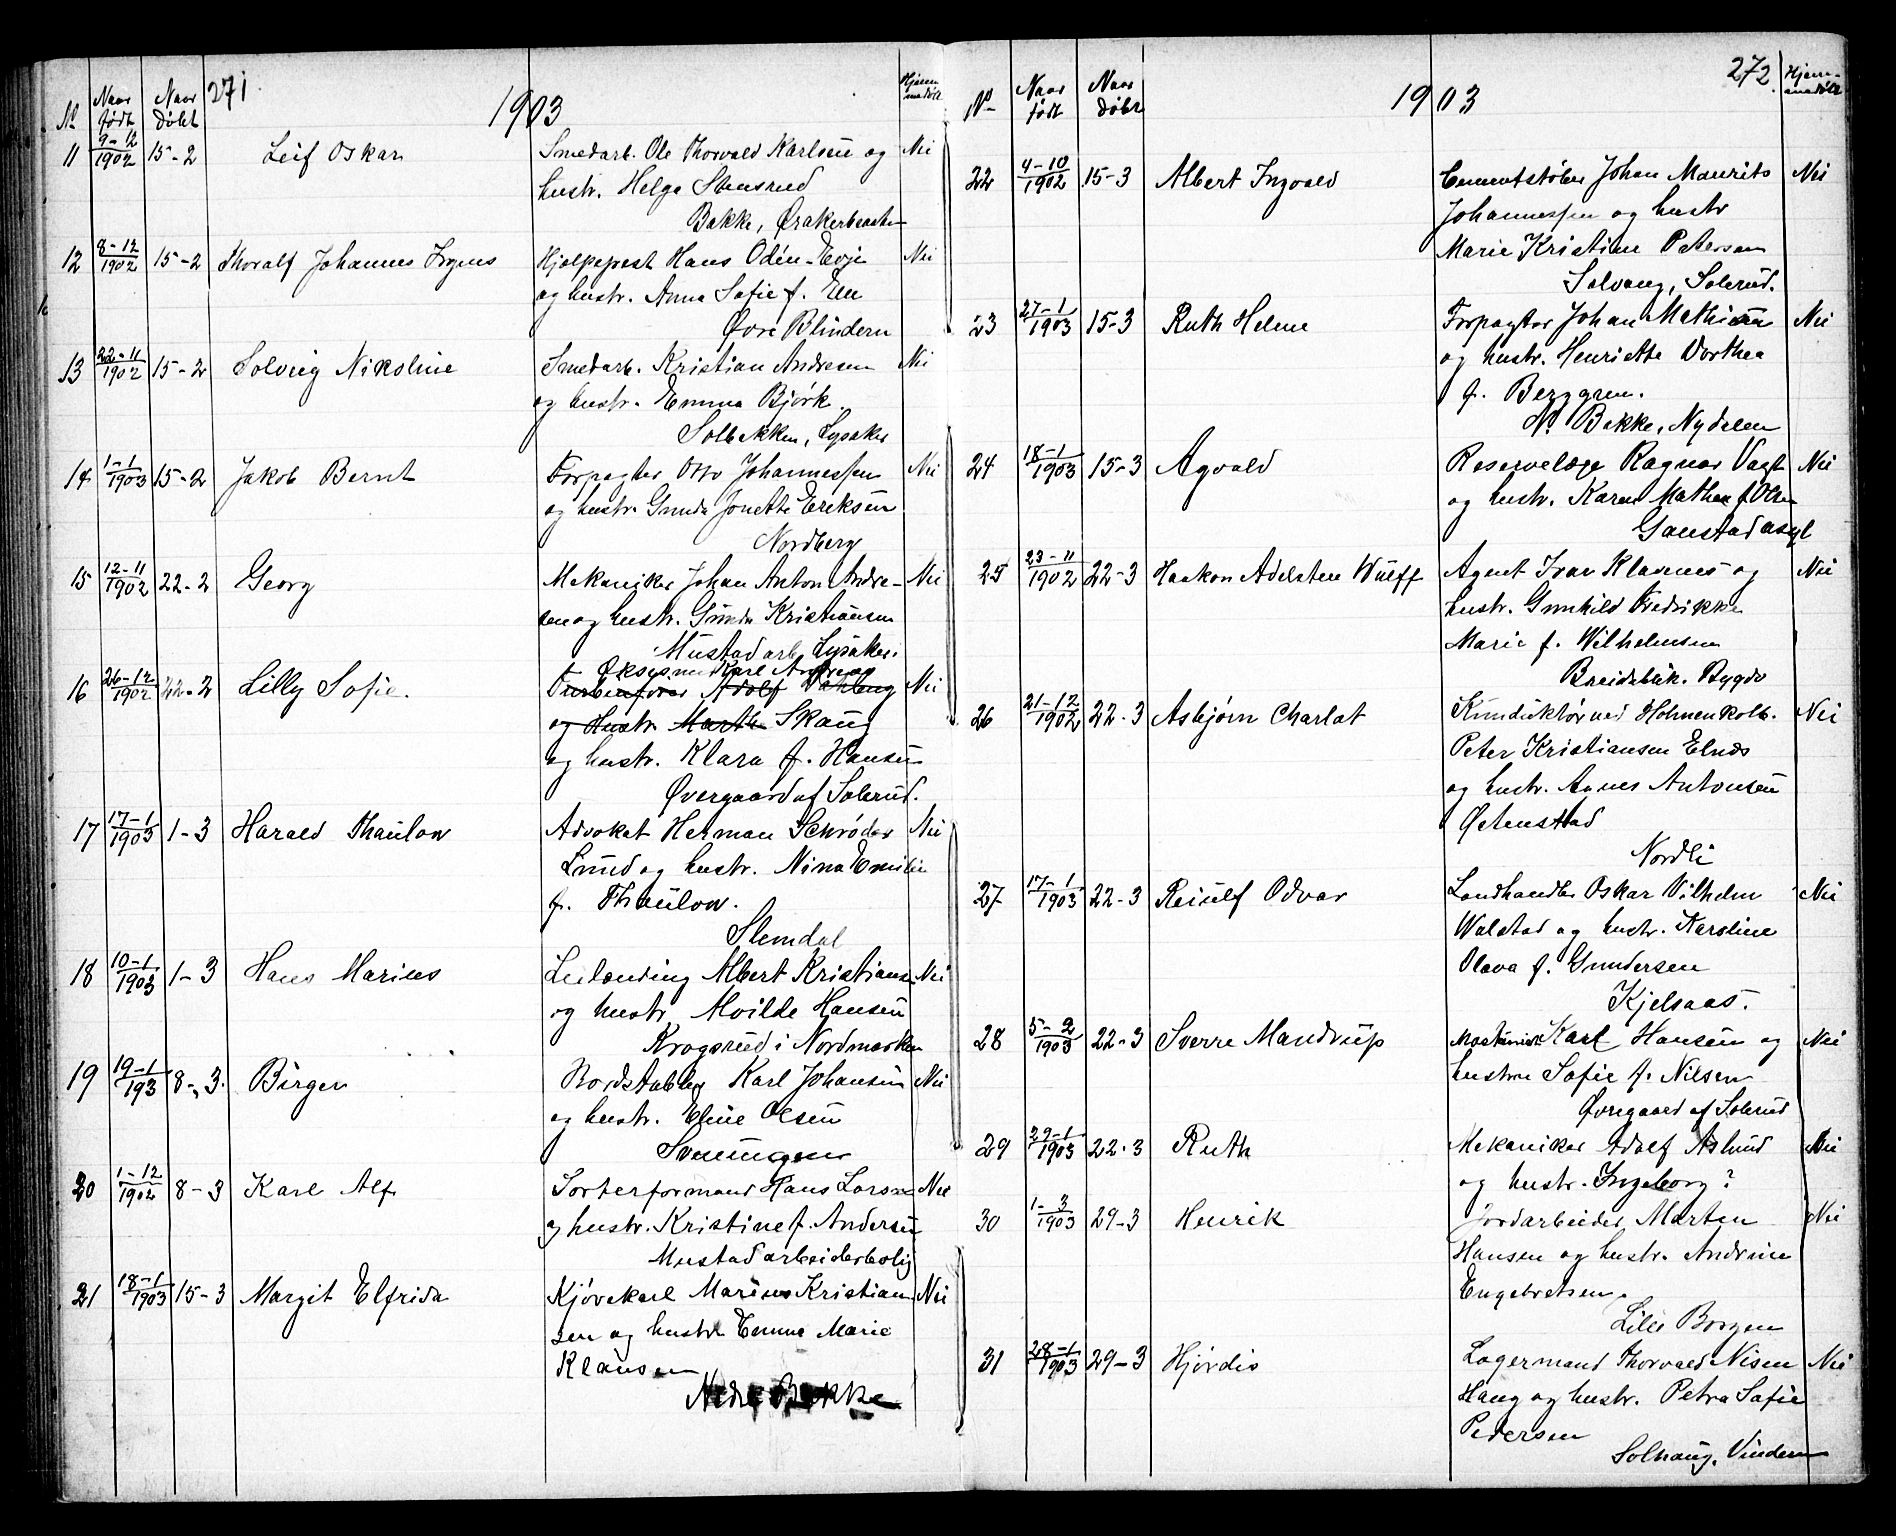 271
1903
No Naar født Naar døbt Hjemmedøbt
11 9-12/1902 15-2 Leif Oskar Smedarb. Ole Thorvald Karlsen og Nei
hustr. Helga Stensrud
Bakke, Ørakerbraaten
12 8-12/1902 15-2 Thoralf Johannes Hjelpeprest Hans Odin Evje Nei
og hustr. Anna Sofie f. Elle
Øvre Blindern
13 22-11/1902 15-2 Solveig Nikoline Smedarb. Kristian Andresen Nei
og hustr. Emma Bjørk.
Solbakken, Lysaker
14 1-1/1903 15-2 Jakob Bernt Forpagter Otto Johannessen Nei
og hustr. Gunda Jonette Eriksen
Nordberg
15 12-11/1902 22-2 Georg Mekaniker Johan Anton Andre- Nei
sen og hustr. Gunda Kristiansen
Mustad arb. Lysaker.
16 26-12/1902 22-2 Lilly Sofie. Øksesmed Karl Andreas Nei
Turbinfører Adolf
og Hustr. Marth Skaug
og hustr. Klara f. Hansen
Øvergaard af Solerud.
17 17-1/1903 1-3 Harald Thaulow Advokat Herman Schrøder Nei
Lund og hustr. Nina Emilie
f. Thaulow.
Slemdal
18 10-1/1903 1-3 Hans Marius Leilænding Albert Kristiansen Nei
og hustr. Alvilde Hansen
Krogsrud i Nordmarken
19 19-1/193 8-3. Birger Bordstabler Karl Johansen Nei
og hustr. Eline Olsen
Sveningen
20 1-12/1902 8-3 Karl Alf Sorterformand Hans Larsen Nei
og hustr. Kristine f. Andersen
Mustad arbeiderbolig
21 18-1/1903 15-3 Margit Elfrida Kjørekarl Marius Kristian Nei
sen og hustr. Emma Marie
Klausen
Nedre Bakke
272.
1903
No Naar født Naar døbt Hjemmedøbt
22 4-10/1902 15-3 Albert Ingvald Cementstøber Johan Maurits Nei
Johannessen og hustr
Marie Kristine Petersen
Solvang, Solerud.
23 27-1/1903 15-3 Ruth Helene Forpagter Johan Mathisen Nei
og hustr. Henriette Dorthea
f. Berggren.
N. Bakke, Nydalen
24 18-1/1903 15-3 Agvald Reservelæge Ragnar Vogt Nei
og hustr. Karen Mathea f. Olsen
Gaustad asyl
25 23-11/1902 22-3 Haakon Adelsten Wulff Agent Ivar Klavenes og Nei
hustr. Gunhild Fredrikke
Marie f. Wilhelmsen
Breidablik. Bygdø
26 21-12/1902 22-3 Asbjørn Charlot Kunduktør ved Holmenkolb. Nei
Peter Kristiansen Elnæs
og hustr. Agnes Antonsen
Østenstad
Nordli
27 17-1/1903 22-3 Reiulf Odvar Landhandler Oskar Vilhelm Nei
Walstad og hustr. Karoline
Olava f. Gundersen
Kjelsaas.
28 5-2/1903 22-3 Sverre Mandrup Maskinist Karl Hansen og Nei
hustru Sofie f. Nilsen
Øvregaard af Solerud
29 29-1/1903 22-3 Ruth Mekaniker Adolf Aslund Nei
og hustr. Ingeborg?
30 1-3/1903 29-3 Henrik Jordarbeider Martin Nei
Hansen og hustr. Andrine
Engebretsen.
Lille Borgen
31 28-1/1903 29-3 Hjørdis Lagermand Thorvald Nisen Nei
Haug og hustr. Petra Sofie
Pedersen
Solhaug, Vindern